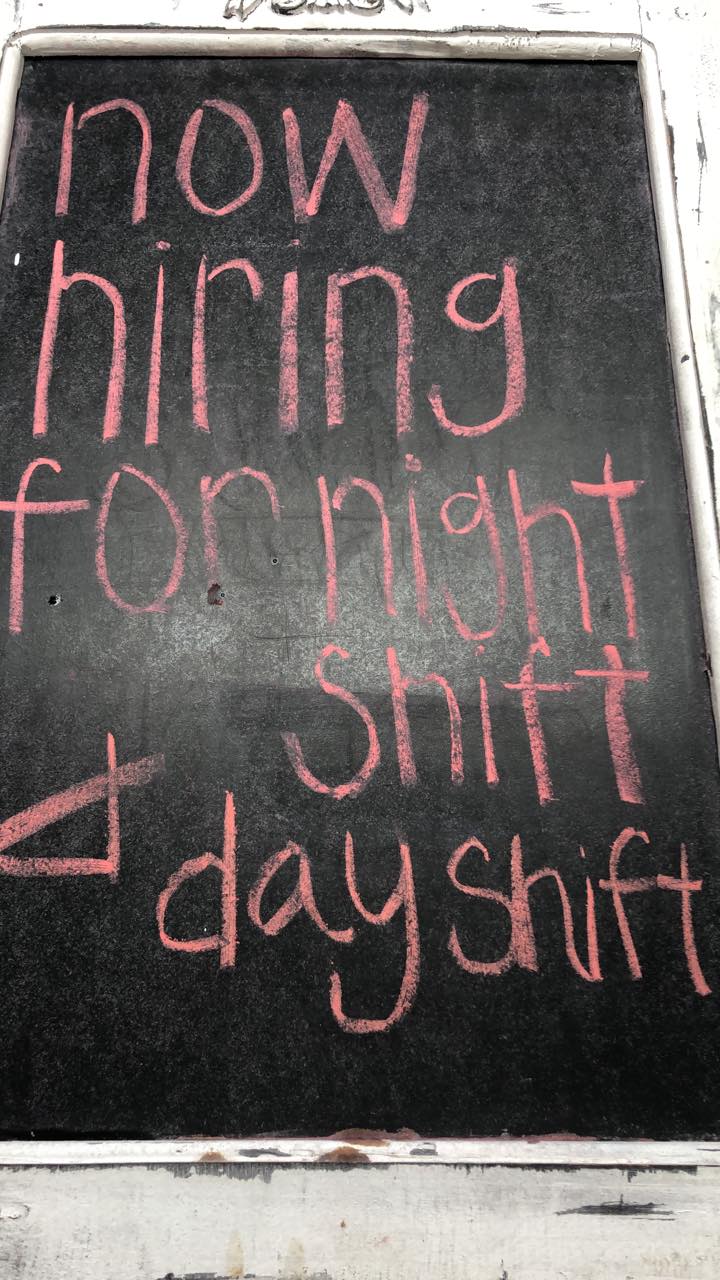 now
hiring
for night
shift
& day shift